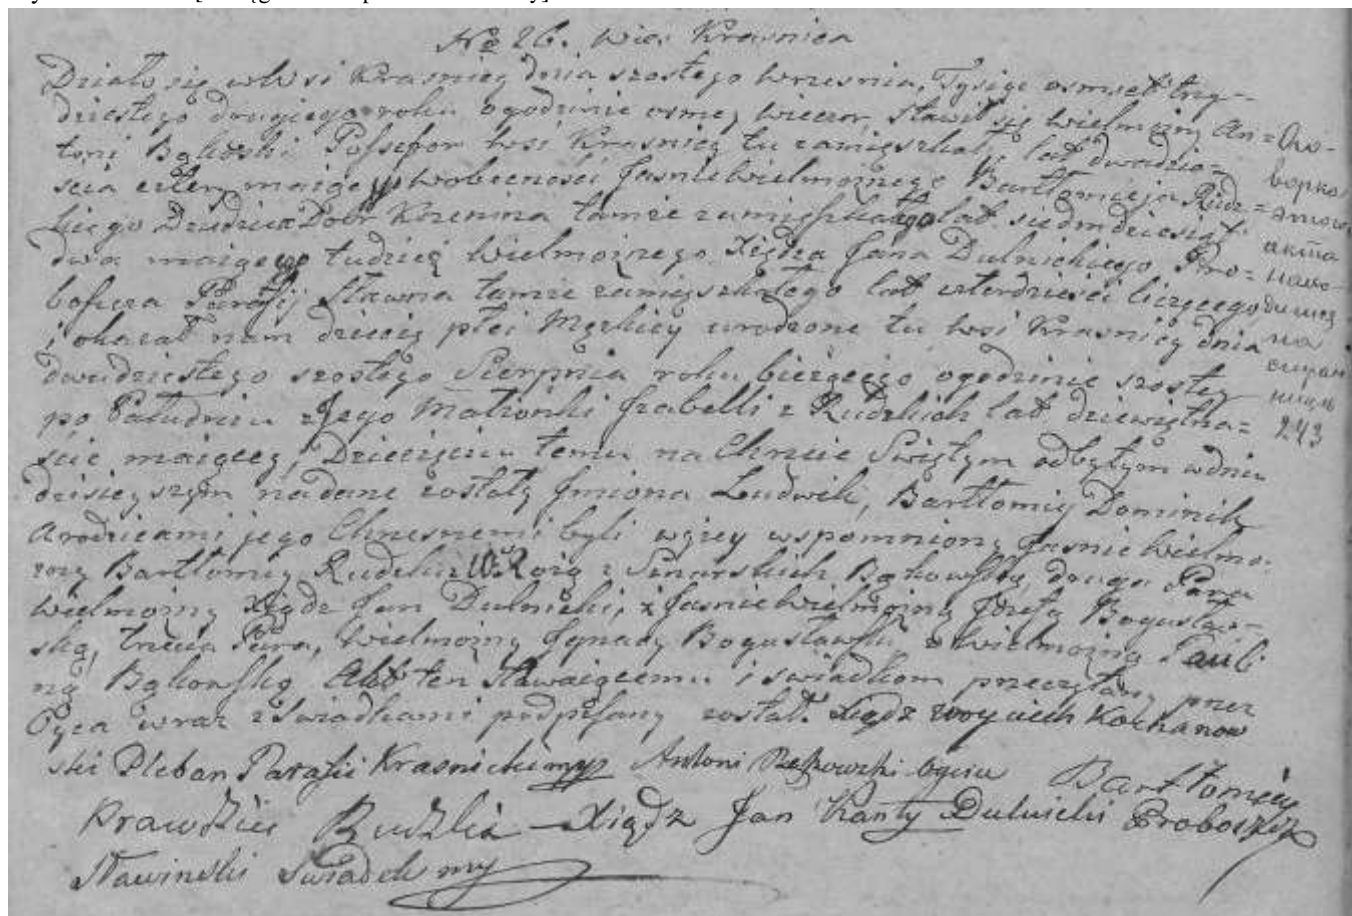 No 26. Wieś Krasnica
Działo się w Wsi Krasnicy dnia szostego wrzesnia, Tysiąc osmset trzy-
dziestego drugiego roku ogodzinie osmey wieczor, stawił się wielmożny An=
toni Bąkoski Possessor wsi Krasnicy tu zamięszkały, lat dwadzie=
scia cztery maiący w obecności Jasnie Wielmożnego Bartłomieja Rudz=
kiego Dziedzica Dobr Kozenina tamże zamięszkałego lat siedmdziesiąt
dwa maiącego tudzież Wielmożnego Xiędza Jana Dulnickiego Pro=
boszcza Parafij Sławna tamże zamięszkałego lat czterdzieści liczącego,
i okazał nam dziecię płci Męzkiey urodzone tu wsi Krasnicy dnia
dwudziestego szostego Sierpnia roku bieżącego ogodzinie szostey
po Południu z Jego Małżonki Izabelli z Rudzkich lat dziewiętna=
ście maiącey, Dziecięciu temu na Chrzcie Swiętym odbytym w dniu
dzisieyszym nadane zostały Jmiona Ludwik, Bartłomiy Dominik,
a rodzicami jego Chrzesnemi byli wyżey wspomniony Jasnie Wielmo-
żny Bartłomiy Rudzki z W. Rożą z Bąkowską, druga Para
Wielmożny Xiądz Jan Dulnicki, z Jasnie Wielmożną Jozefą Bogusław-
ską, trzecia Para, Wielmożny Jgnacy Bogusławski z wielmożną Pauli
ną Bąkowską Akt ten stawaiącemu i swiadkom przeczytany przez
Oyca wraz z Swiadkami podpisany został. Xiądz Woyciech Kochanow
ski Pleban Parafii Krasnickiey mp Antoni Bąkowski Oyciec Bartłomiey
Prawdzic Rudzki — Xiądz Jan Kanty Dulnicki Proboszcz
Sławinski Swiadek mp
акта
на
243